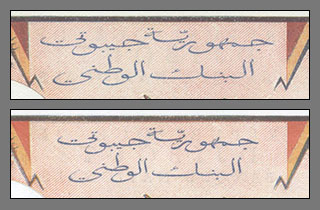 جمهورية جيبوتي
البنك الوطني
جمهورية جيبوتي
البنك الوطني